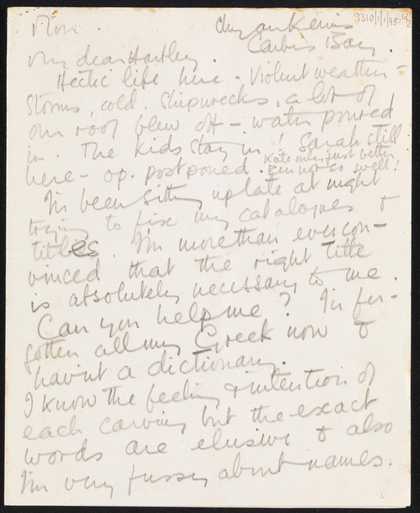 Mon.
Chy-an-Kerris
Carbis Bay.
My dear Hartley.
Hectic life here. Violent weather -
storms, cold. Shipwrecks, a lot of
our roof blew off - water poured
in. The kids stay in! Sarah still
here - op. postponed. Kate only just better
Ben not so well!
I'm been sitting up late at night
trying to fix my catalogues &
titles. I'm more than ever con-
vinced that the right title
is absolutely necessary to me.
Can you help me? I'm for-
gotten all my Greek now &
havint a dictionary.
I know the feeling & intention of
each carving but the exact
words are elusive & also
I'm very fussy about names.